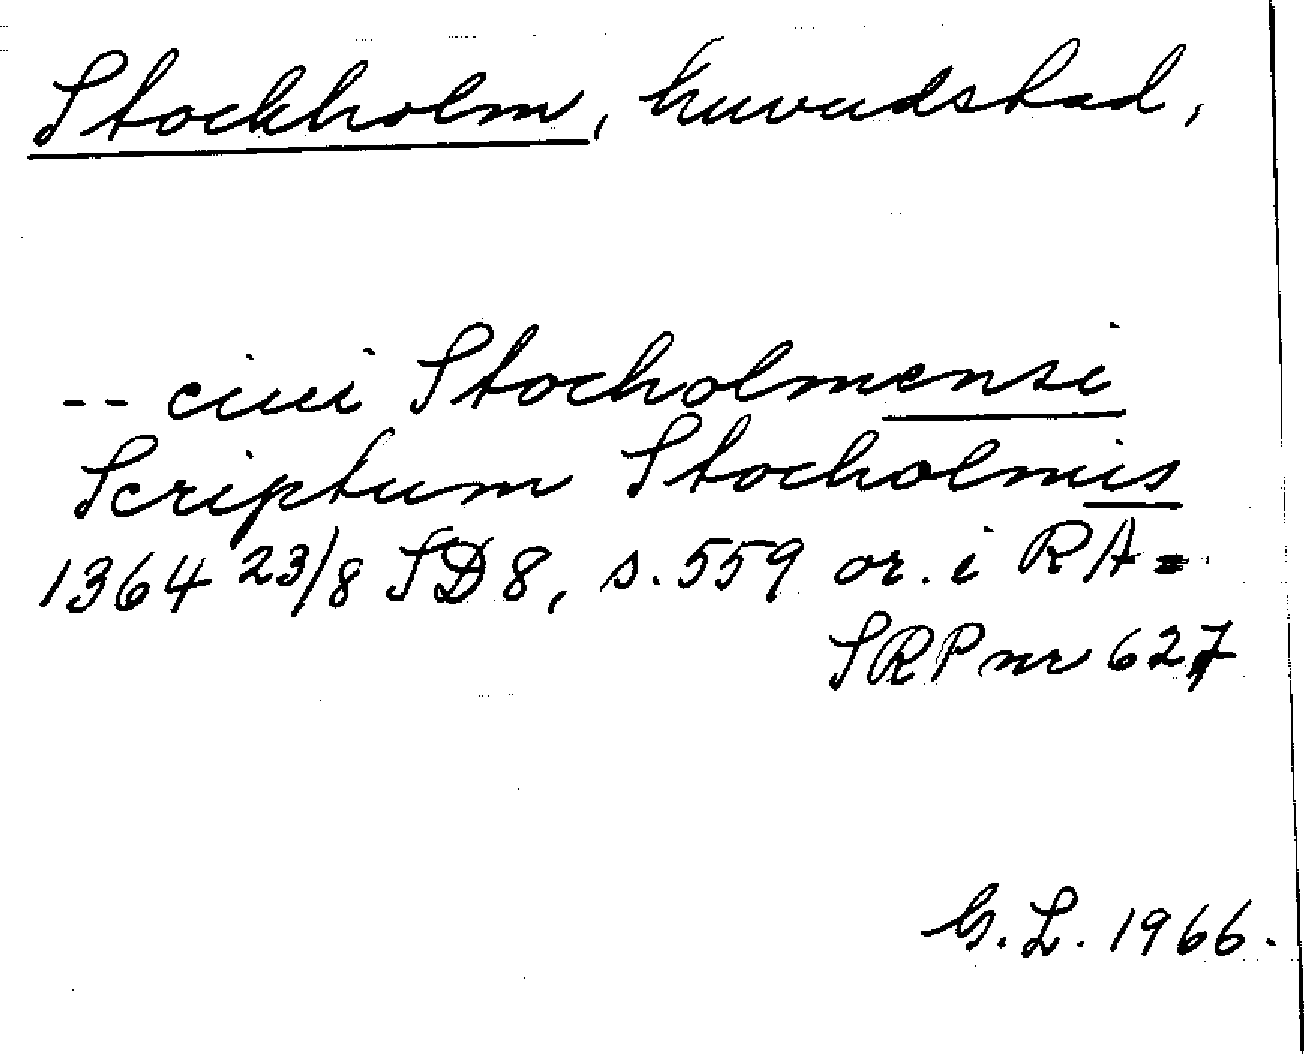 Stockholm, huvudstad,
-- ciui Stocholmensi
Scriptum Stocholmis
1364 23/8 SD 8, s. 559 or. i RA =
SRP nr 627
G. L. 1966.